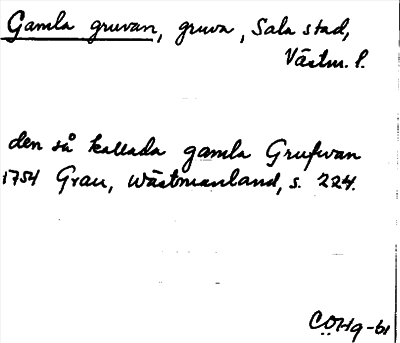 Gamla gruvan, gruva, Sala stad,
Västm. l.
den så kallada gamla Grufwan
1754 Grau, Wästmanland, s. 224.
CÖHg-61